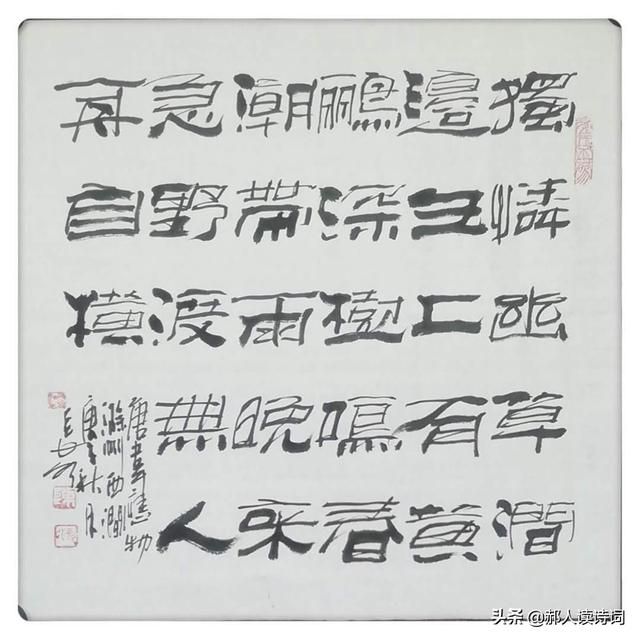 獨憐幽草澗
邊生上有黃
鸝深樹鳴春
潮帶雨晚來
急野渡無人
舟自橫
唐韋應物
滁州西澗
庚子秋月
头条 @郝人读诗词